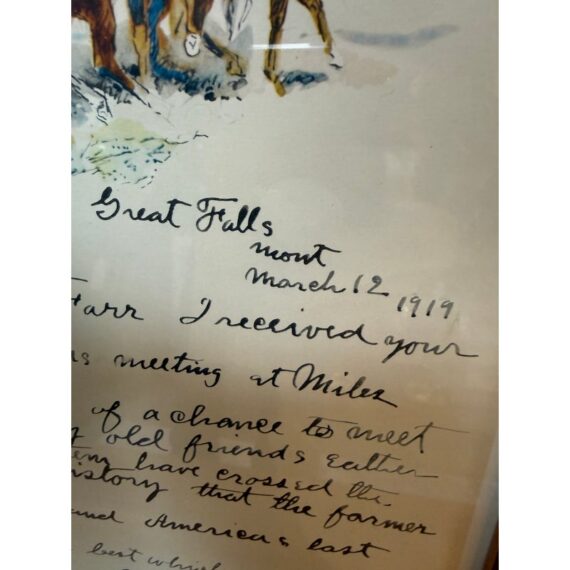 Great Falls
Mont
March 12 1919
Farr I received your
meeting at Miles
of a chance to meet
old friends gather
have crossed the
that the farmer
and America s last
best which